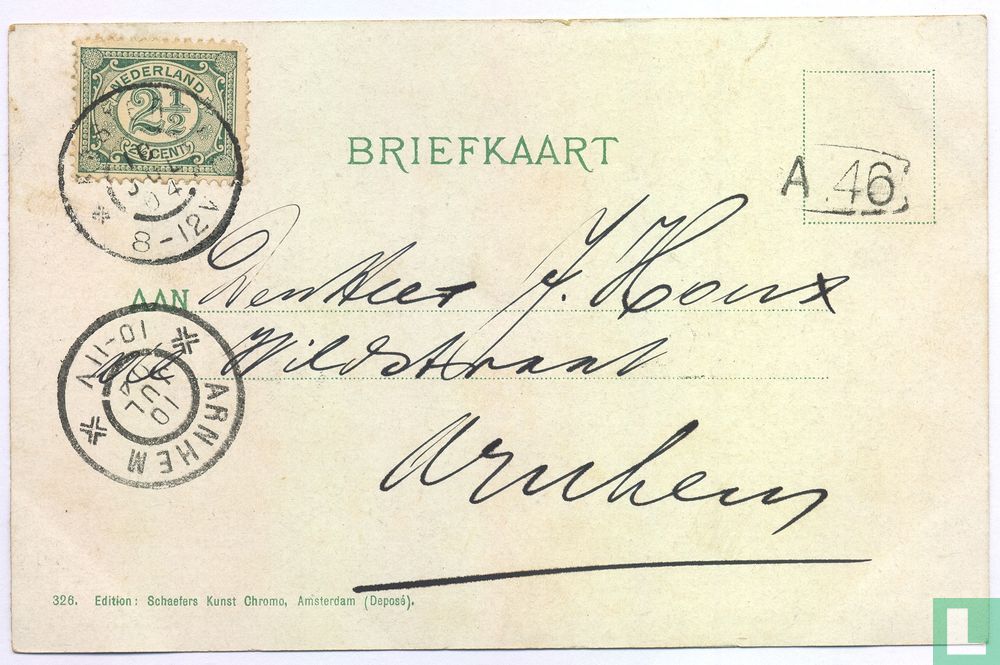 NEDERLAND
2½
CENT
8-12V
BRIEFKAART
A 46
AAN Den Heer J. Houx
Wildstraat
Arnhem
10-11V
ARNHEM
326. Edition: Schaefers Kunst Chromo, Amsterdam (Deposé).
L